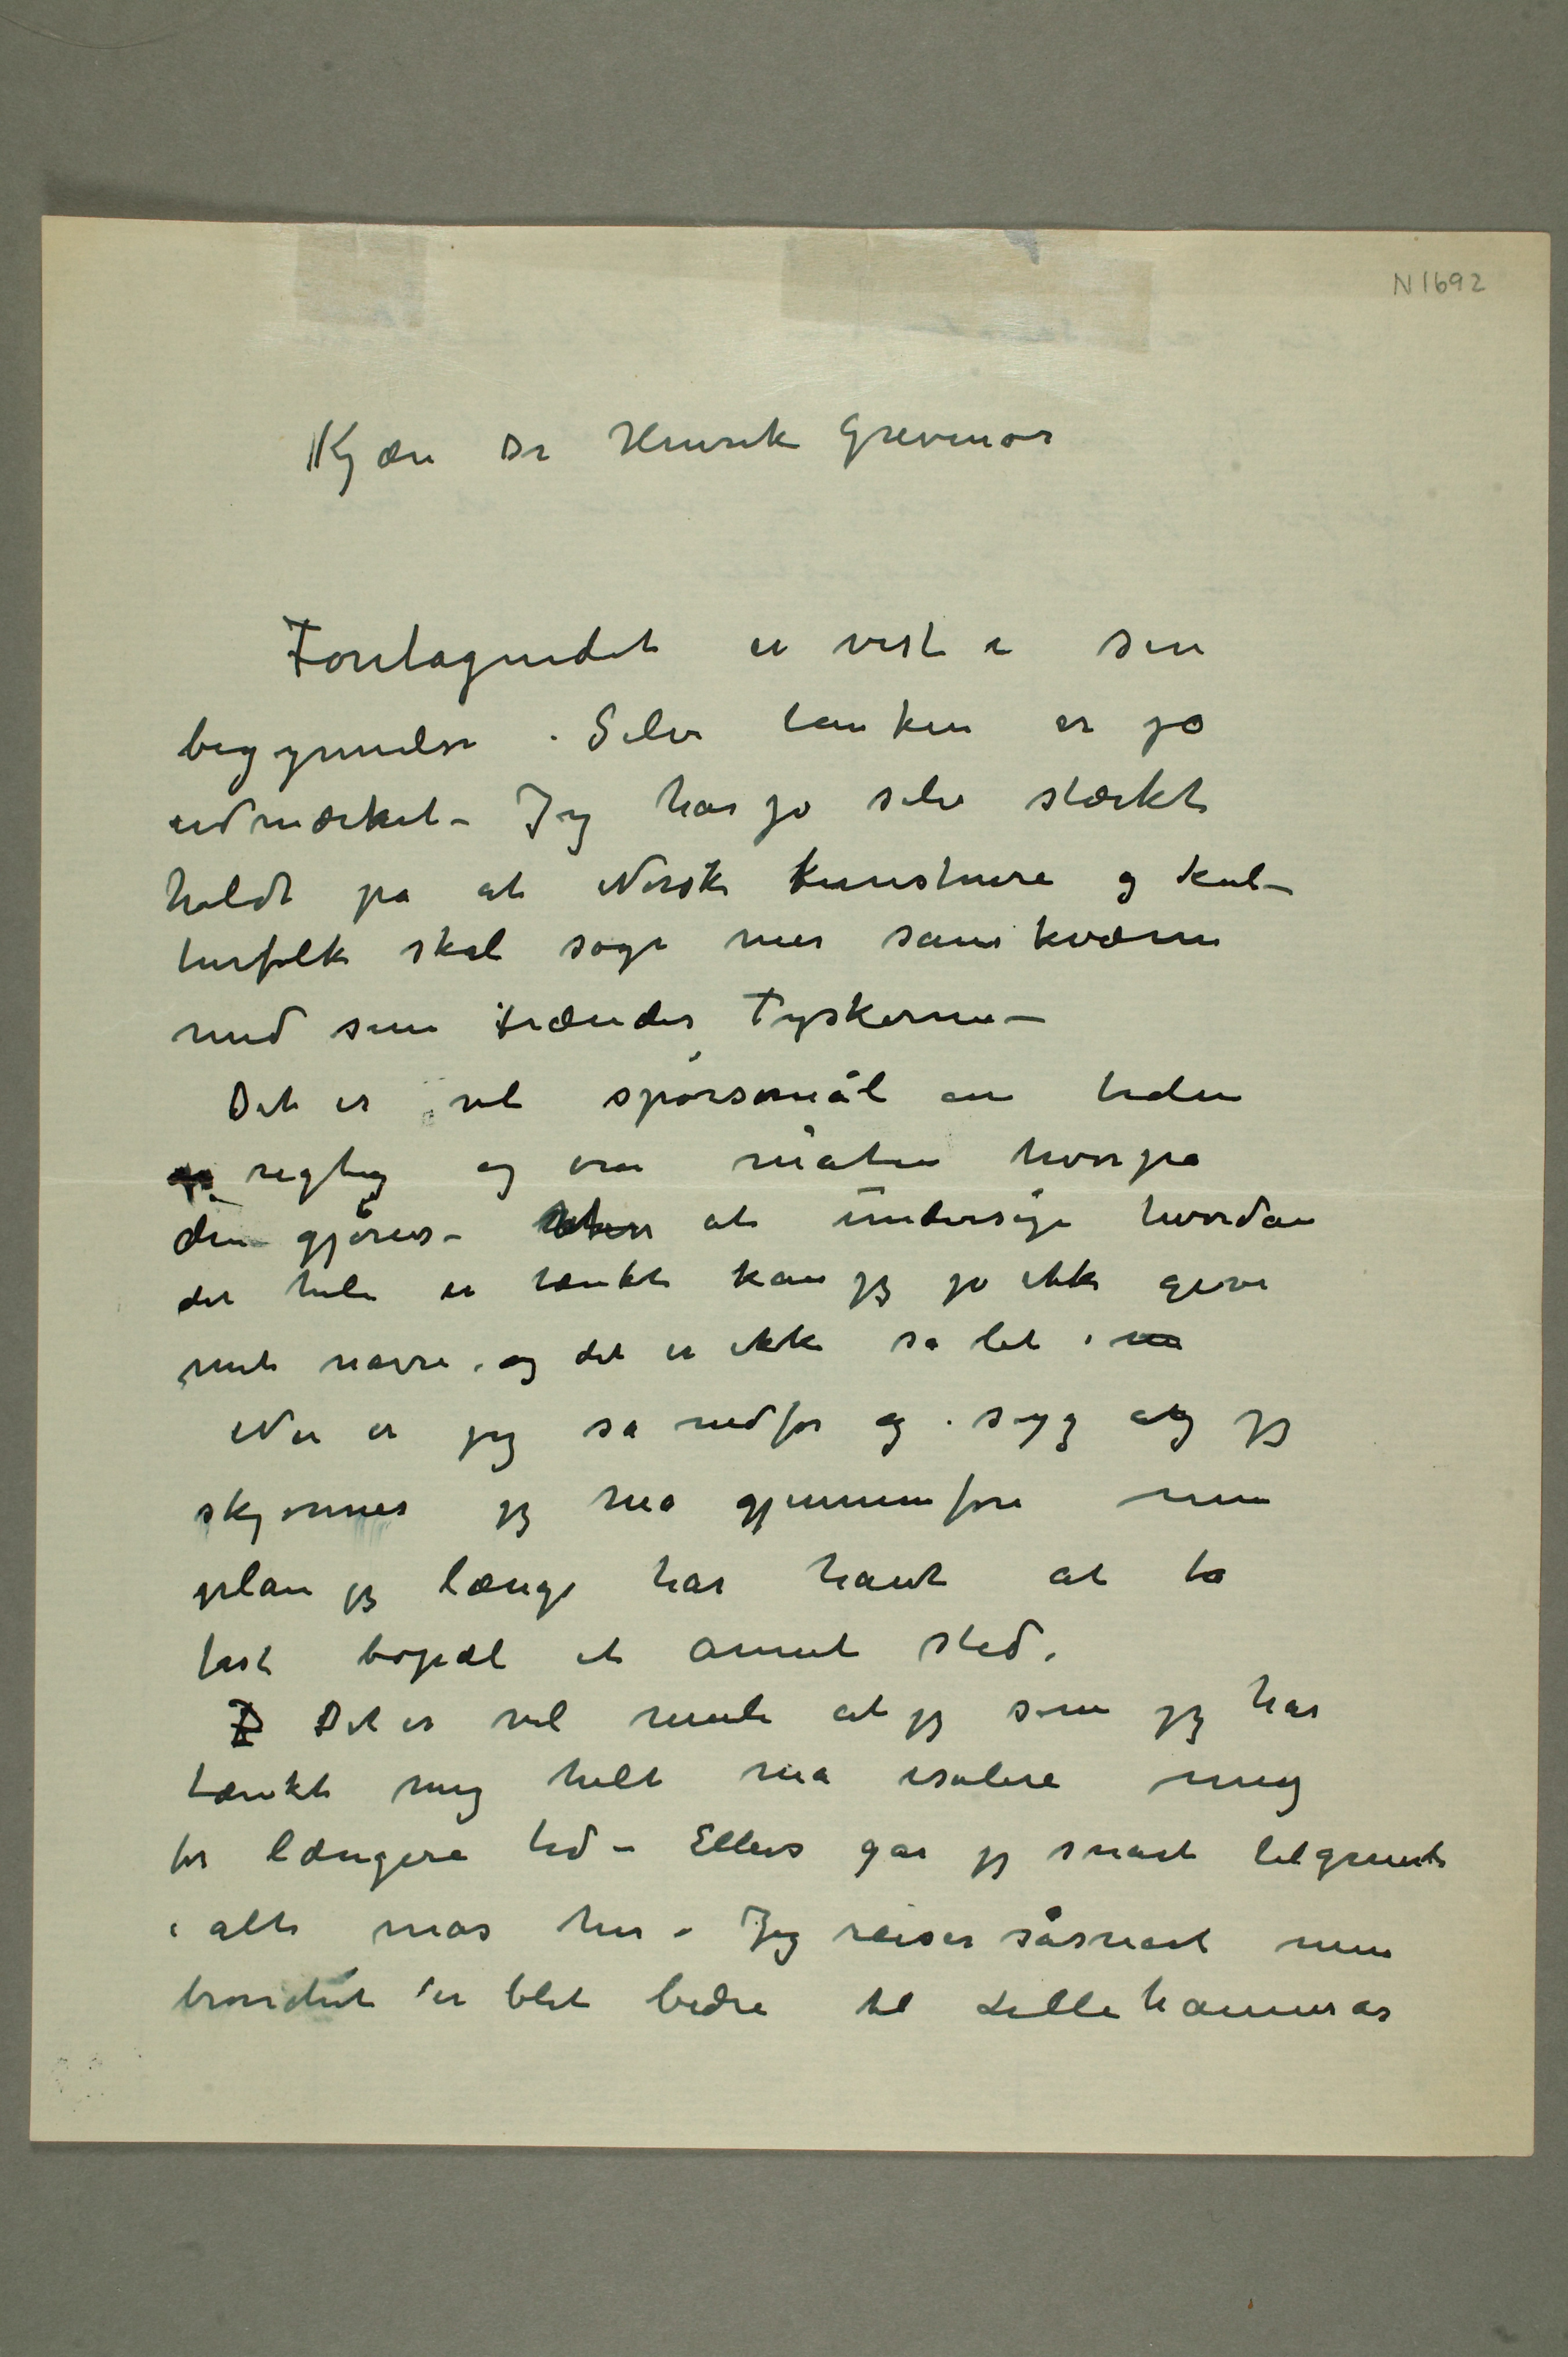 N 1692
Kjære Dr Henrik Grevenor
Foretagendet er vist i sin
begyndelse. Selve tanken er jo
udmærket – Jeg har jo selv stærkt
holdt på at Norske Kunstnere og kul–
turfolk skal søge mer samkvæm
med sine Frænder Tyskerne –
Det er vel spørsmål om tiden
rigtig og om måten hvorpå
den gjøres – at undersøge hvordan
det hele er tænkt kan jeg jo ikke give
mit navn. og det er ikke så let.
Nu er jeg så nedfor og syg at jeg
skjønner jeg må gjennemføre min
plan jeg længe har havt at ta
fast bopæl et annet sted.
Det er vel mulig at jeg som jeg har
tænkt mig helt må isolere mig
for længere tid – Ellers går jeg snart tilgrunde
i alt mas her – Jeg reiser såsnart min
bronchit er blit bedre til Lillehammer